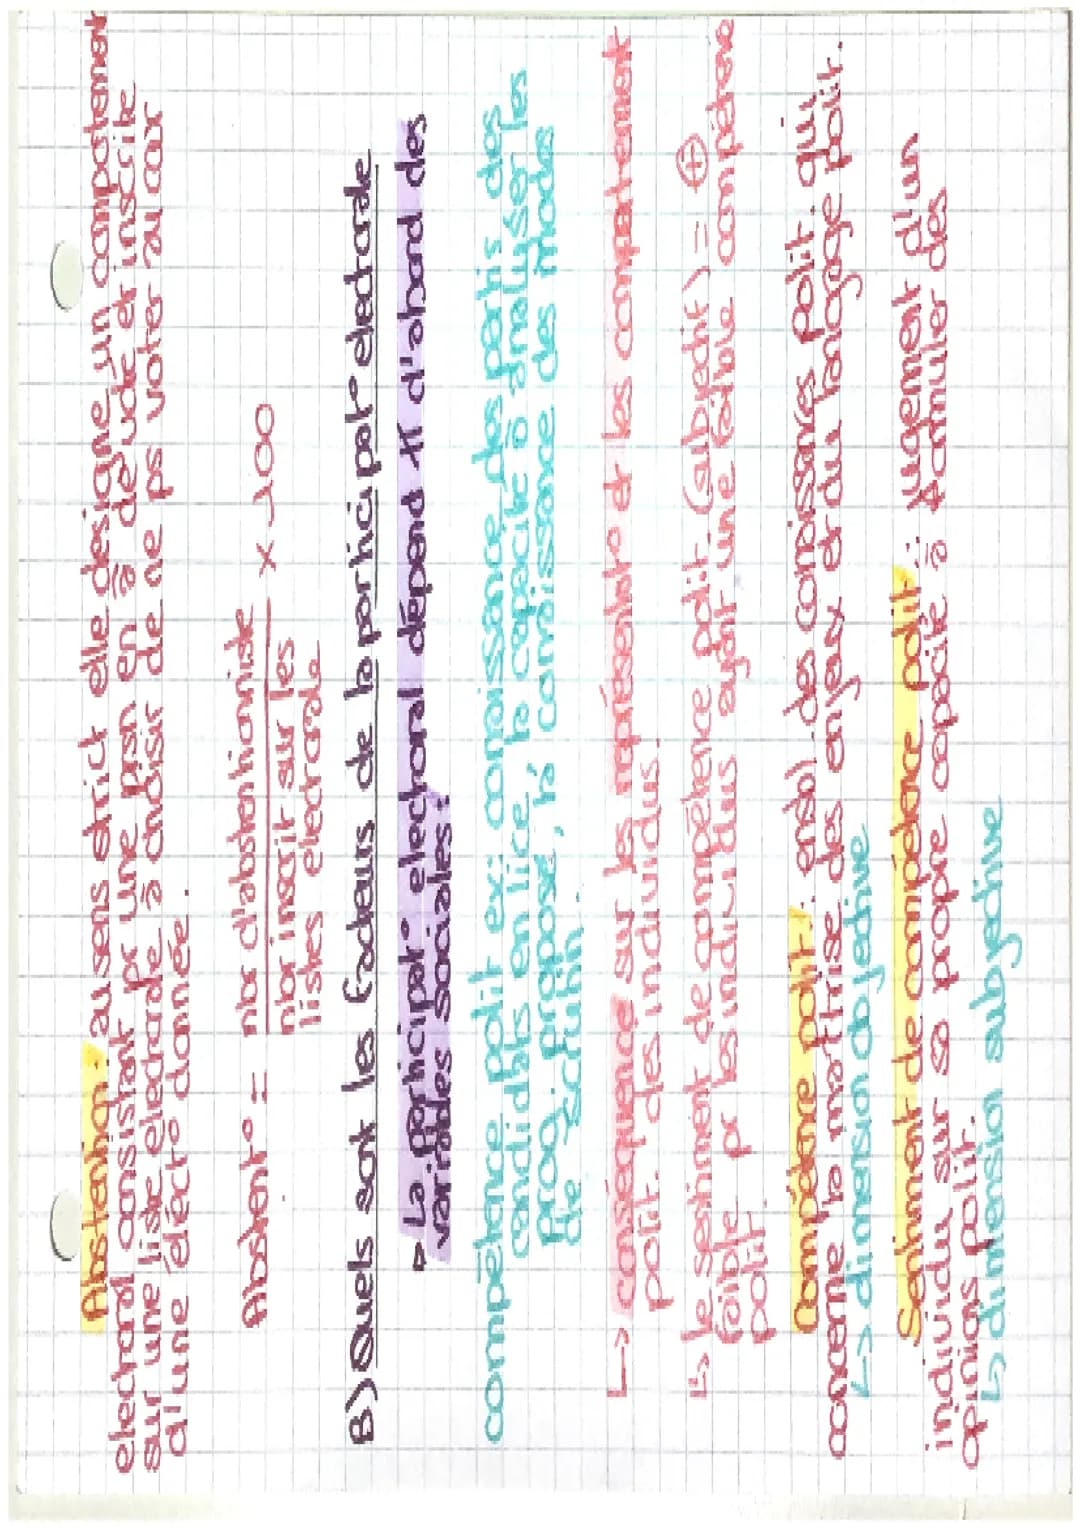 Abstention: au sens strict elle désigne un comportement
électoral consistant pr une prsn en â de vote et inscrite
sur une liste électorale à choisir de ne ps voter au cour
d'une élect° donnée.
Abstent° = nbr d'abstentionniste x 100
nbr inscrit sur les
listes électorale
B) Quels sont les facteurs de la participat° électorale
▷ La participat° electroral dépend tt d'abord des
variables sociales:
compétence polit exi connaissance des partis des
candidats en lice, la capacité à analyser les
prog proposé, la connaissance des mode
de scrutin.
↳ conséquence sur les représentat° et les comportement
polit. des individus.
↳ le sentiment de compétence polit. (subjectif) = +
faible pr les individus ayant une faible compétence
polit
Compétence polit: ensbl. des connaissances polit. qui
concerne la maîtrise des enjeux et du langage polit.
↳ dimension objective
Sentiment de compétence polit: jugement d'un
individu sur sa propre capacité à formuler des
opinions polit.
↳ dimension subjective